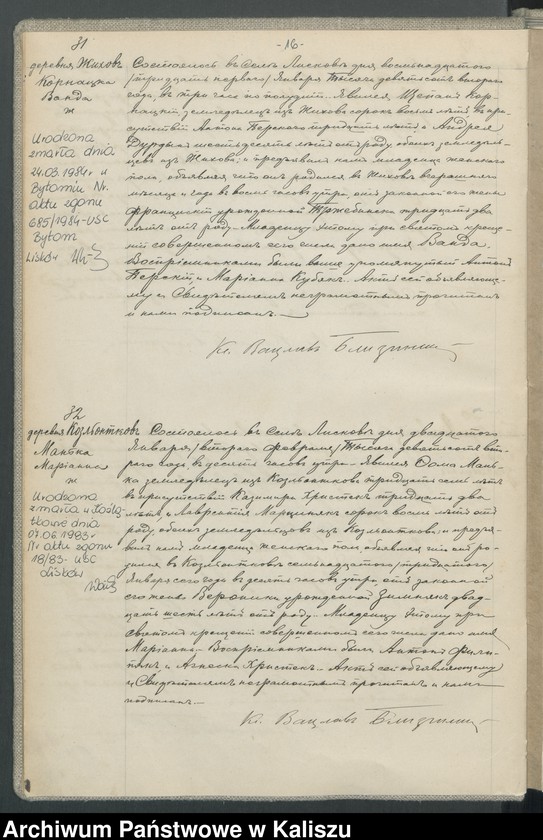 -16-
31
деревня Жиховъ
Корнацка
Ванда
Urodzona
zmarła dnia
24.03.1984 r. w
Bytomiu Nr.
aktu zgonu
685/1984-USC
Bytom
Lisków
Состоялось въ Селѣ Лисковѣ дня восьмнадцатаго
/тридцать перваго/ Января Тысяча девятьсотъ втораго
года въ три часа по полудни. Явился Щепанъ Кор-
нацкій, земледѣлецъ изъ Жихова сорокъ восемь лѣтъ въ при-
сутствіи Антона Перскаго тридцати лѣтъ и Андрея
Дурдъя шестьдесятъ лѣтъ отъ роду обоихъ земледѣль-
цевъ изъ Жихова, и предъявилъ намъ младенца женскаго
пола, объявляя что онъ родился въ Жиховѣ вчерашняго
мѣсяца и года въ восемь часовъ утра, отъ законной его жены
Францишки урожденной тридцать два
лѣтъ отъ роду. Младенцу этому при святомъ креще-
ніи совершенномъ сего числа дано имя Ванда.
Воспріемниками были выше упомянутый Антонъ
Перскій, и Маріанна Кубякъ. Актъ сей объявляюще-
му и Свидѣтелямъ неграмотнымъ прочитанъ
и нами подписанъ.
Кс. Вацлавъ Близинскій
32
деревня Козьлонтковъ
Мантка
Маріанна
Urodzona
zmarła w
dnia
07.06.1983 r.
Nr aktu zgonu
18/83- USC
Lisków
Состоялось въ Селѣ Лисковѣ дня двадцатаго
Января /втораго Февраля/ Тысяча девятьсотъ вто-
раго года въ десять часовъ утра. Явился Ѳома Мант-
ка земледѣлецъ изъ Козьлонткова тридцать семь лѣтъ
въ присутствіи Казимира Христекъ тридцать два
лѣтъ, и Лаврентія Марцинякъ сорокъ восемь лѣтъ отъ
роду, обоихъ земледѣльцовъ изъ Козьлонткова, и предъя-
вилъ намъ младенца женскаго пола, объявляя что онъ ро-
дился въ Козьлонтковѣ семьнадцатаго /тридцатаго/
Января сего года въ десять часовъ утра, отъ законной
его жены Вероники урожденной Зимнякъ двад-
цать шесть лѣтъ отъ роду. Младенцу этому при
святомъ крещеніи совершенномъ сего числа дано имя
Маріанна. Воспріемниками были Антонъ Фили-
пякъ и Агнеса Христекъ. Актъ сей объявляющему
и Свидѣтелямъ неграмотнымъ прочитанъ и нами
подписанъ.
Кс. Вацлавъ Близинскій
Archiwum Państwowe w Kaliszu